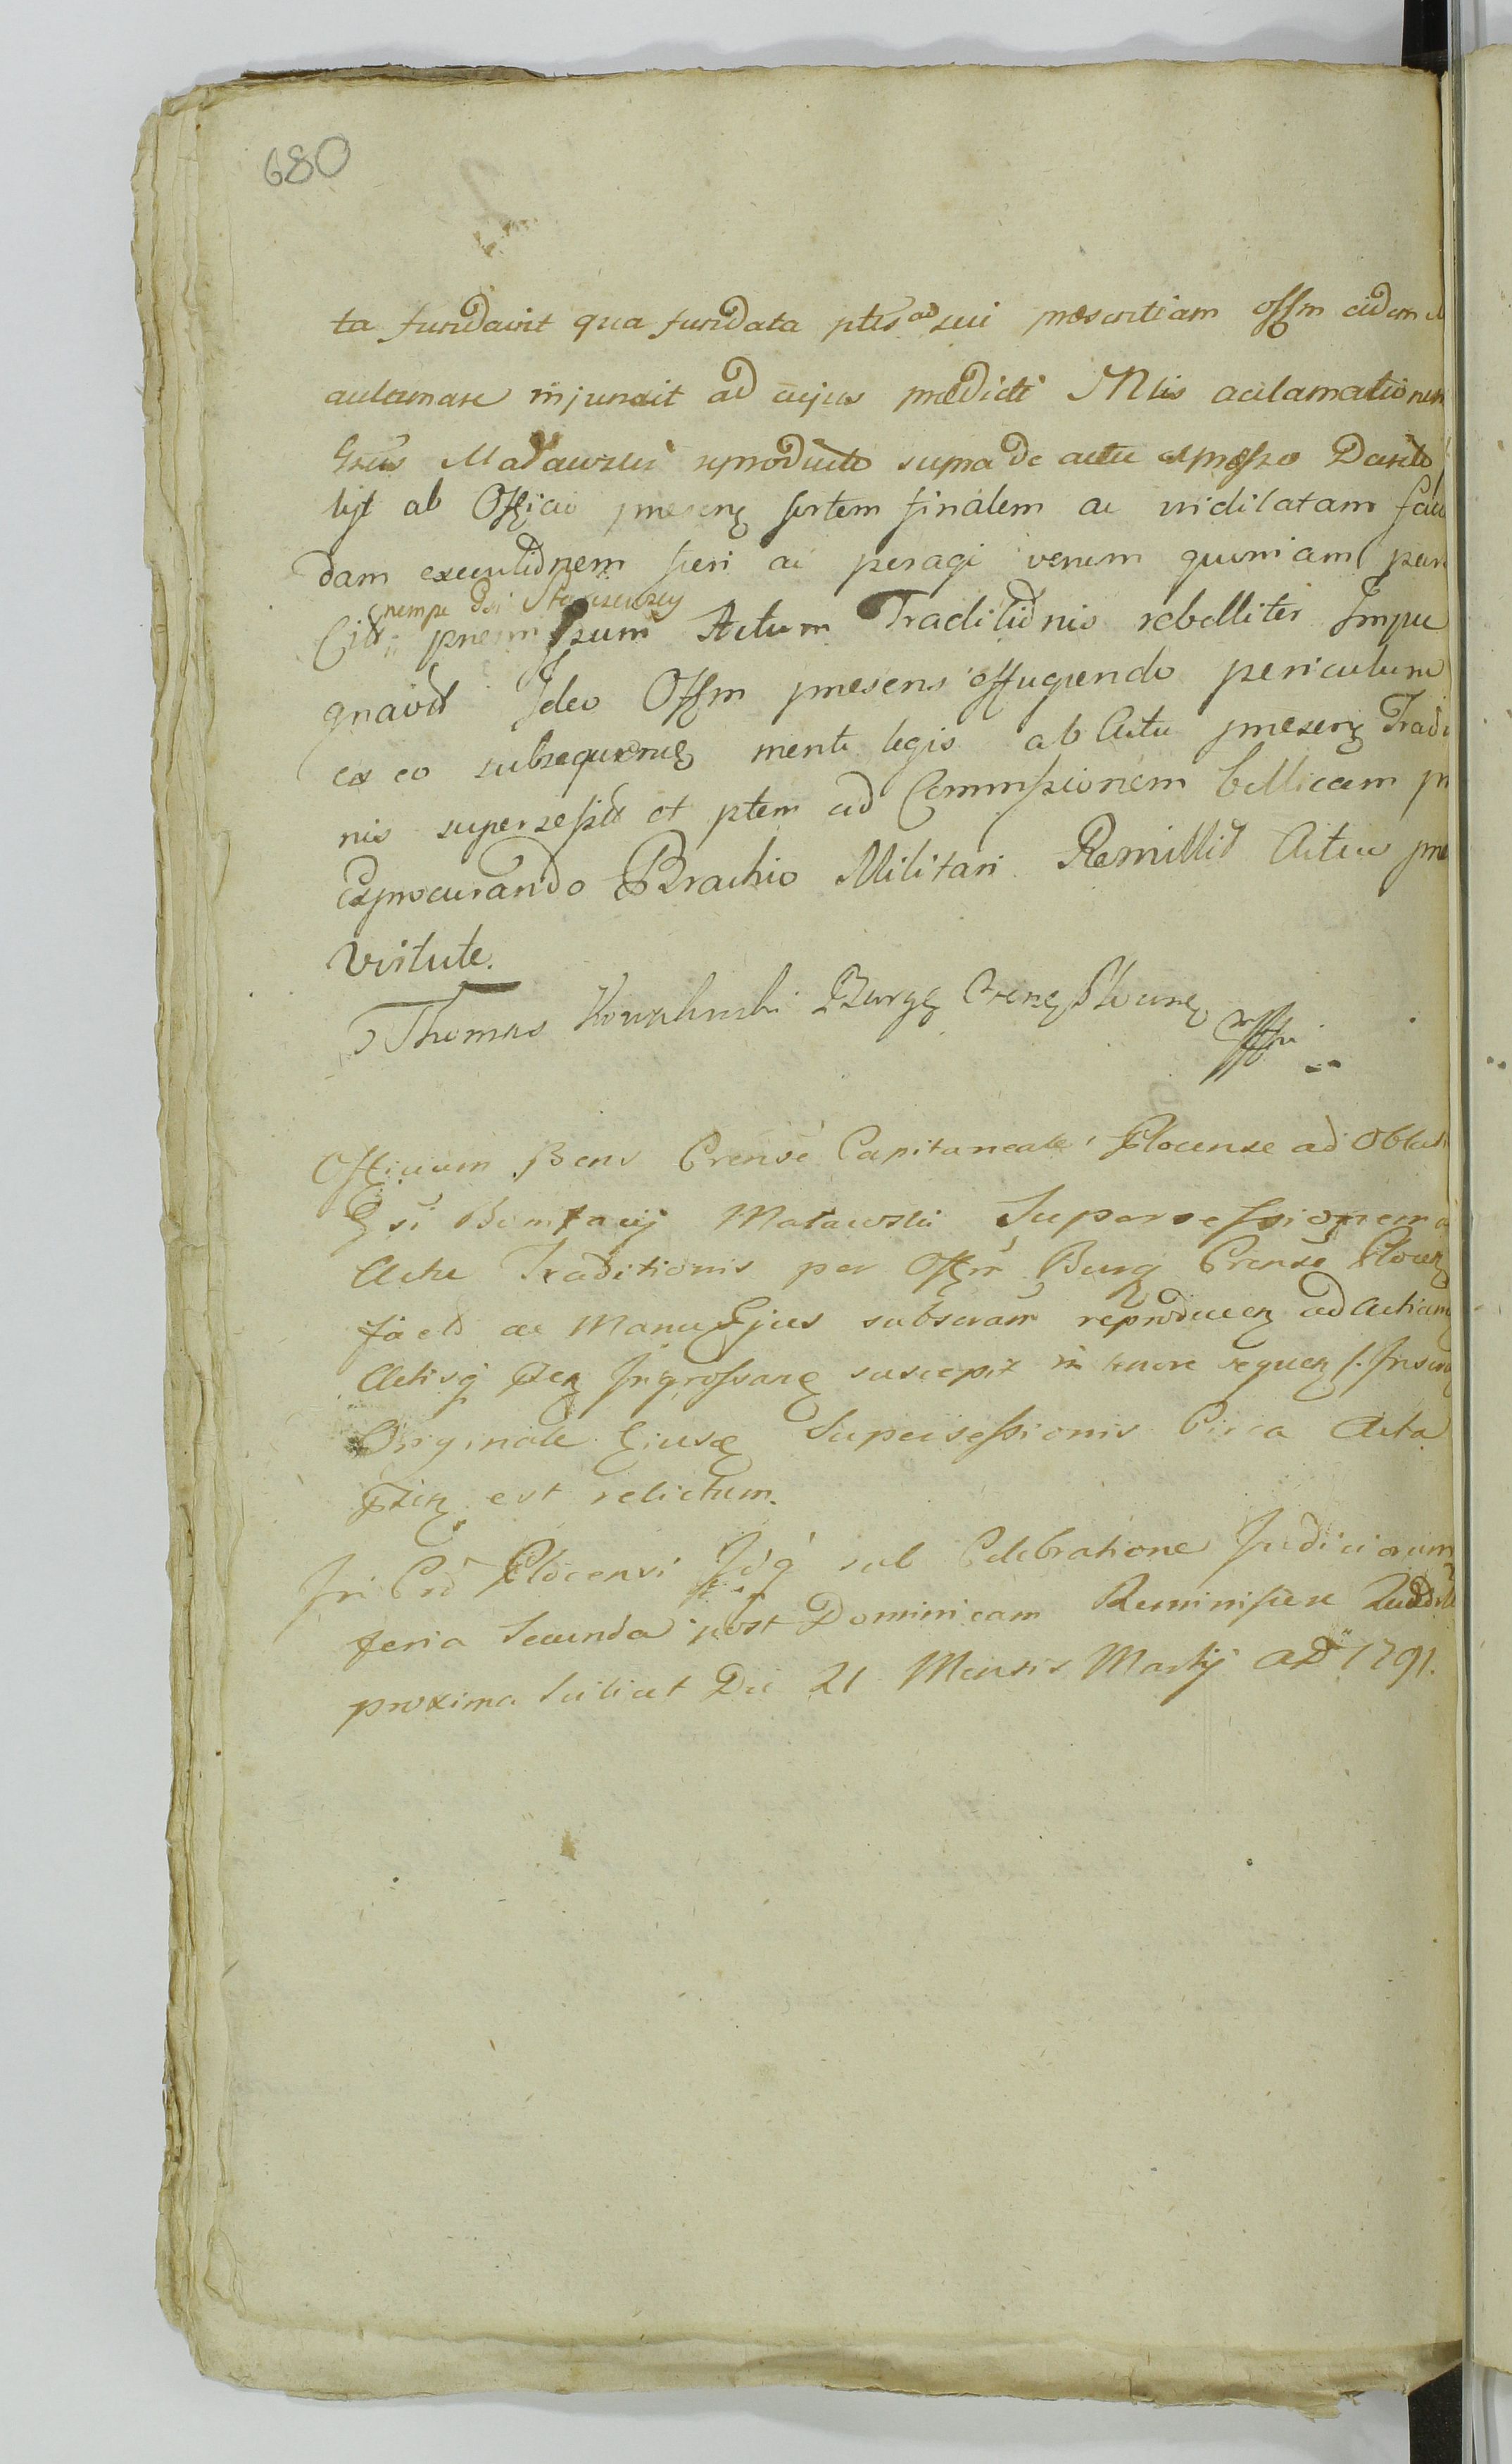 680
ta fundavit qua fundata ptes ad sui præsentiam offm eidem
acclamare injunxit ad cujus prædicti Mlis acclamationem
Gsus Madawski reproducto supra de actu expresso Decreto
ijt ab Officio presenz sortem finalem ac
dam executionem fieri ac peragi verum quoniam pars
nempe Dni
Citta pnem suum Actum Traditionis rebelliter Impu
gnavit Ideo Offm presens effugiendo periculum
ex eo subsequens mente legis ab Actu presenz Tradi
nis supersesit et ptem ad Commissionem bellicam
exprocurando Brachio Militari Remittit Actus
virtute.
Thomas Burgz Crenz Plocenz
Officium Crense Capitaneale Plocense ad Oblat
Gsi Bonifacij Matawski Supersessionem
Actu Traditionis per Offm Burg Crense Plocenz
fact ac Manu Ejus subscram reproducen ad Acticanz
Actisq Ingrossanz suscepit in tenore sequen
Originale Ejusdz Supersessionis Circa Acta
est relictum.
In Cro Plocensi Idq sub Celebratione Judiciorum
feria Secunda post Dominicam Reminiscere
proxima Scilicet Die 21 Mensis Martij AD 1791.